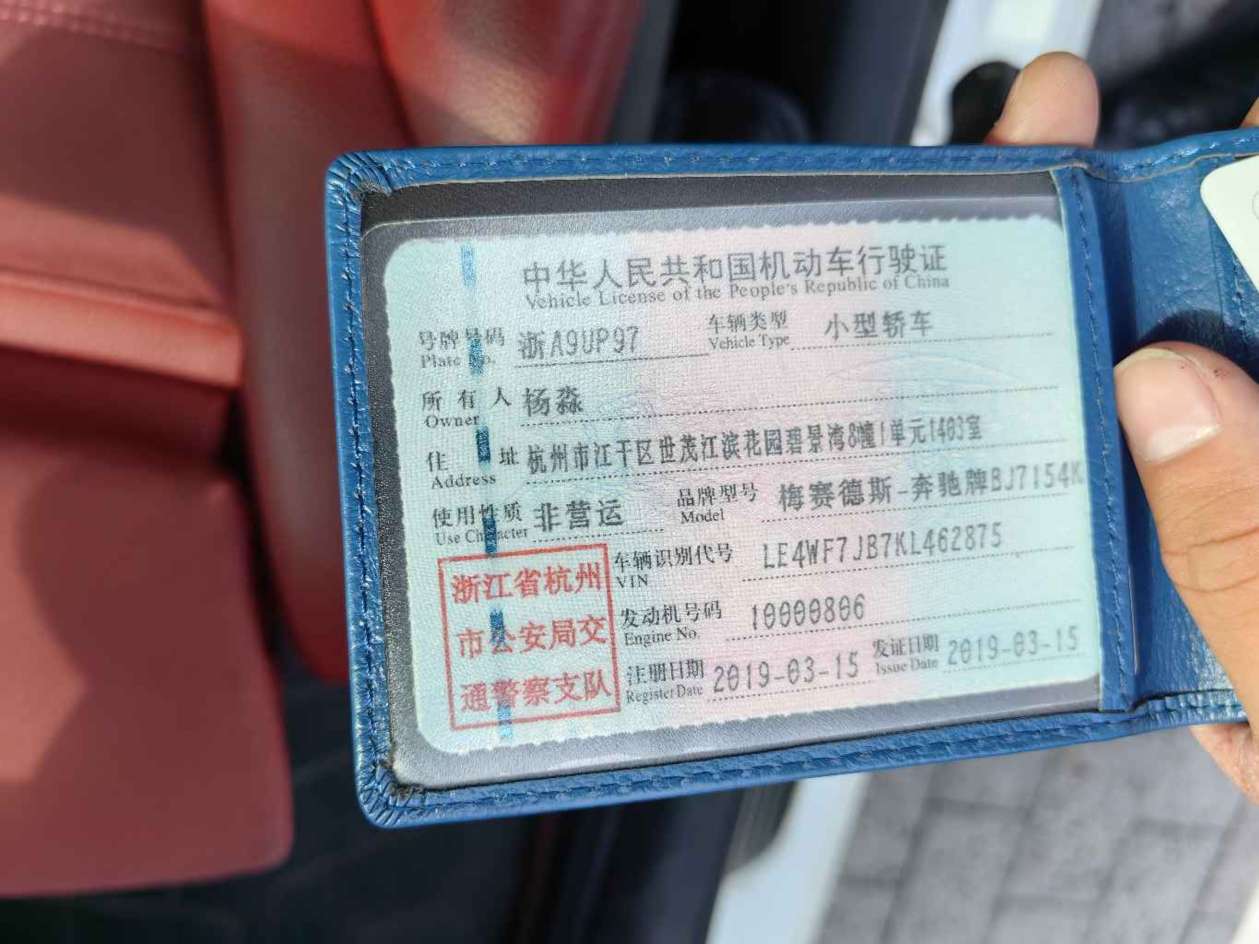 中华人民共和国机动车行驶证
Vehicle License of the People's Republic of China
号牌号码 浙A9UP97 车辆类型 小型轿车
Plate No. Vehicle Type
所有人 杨淼
Owner
住址 杭州市江干区世茂江滨花园碧景湾8幢1单元1403室
Address
使用性质 非营运 品牌型号 梅赛德斯-奔驰牌BJ7154K
Use Character Model
车辆识别代号 LE4WF7JB7KL462875
VIN
发动机号码 10000806
Engine No.
注册日期 2019-03-15 发证日期 2019-03-15
Register Date Issue Date
浙江省杭州
市公安局交
通警察支队